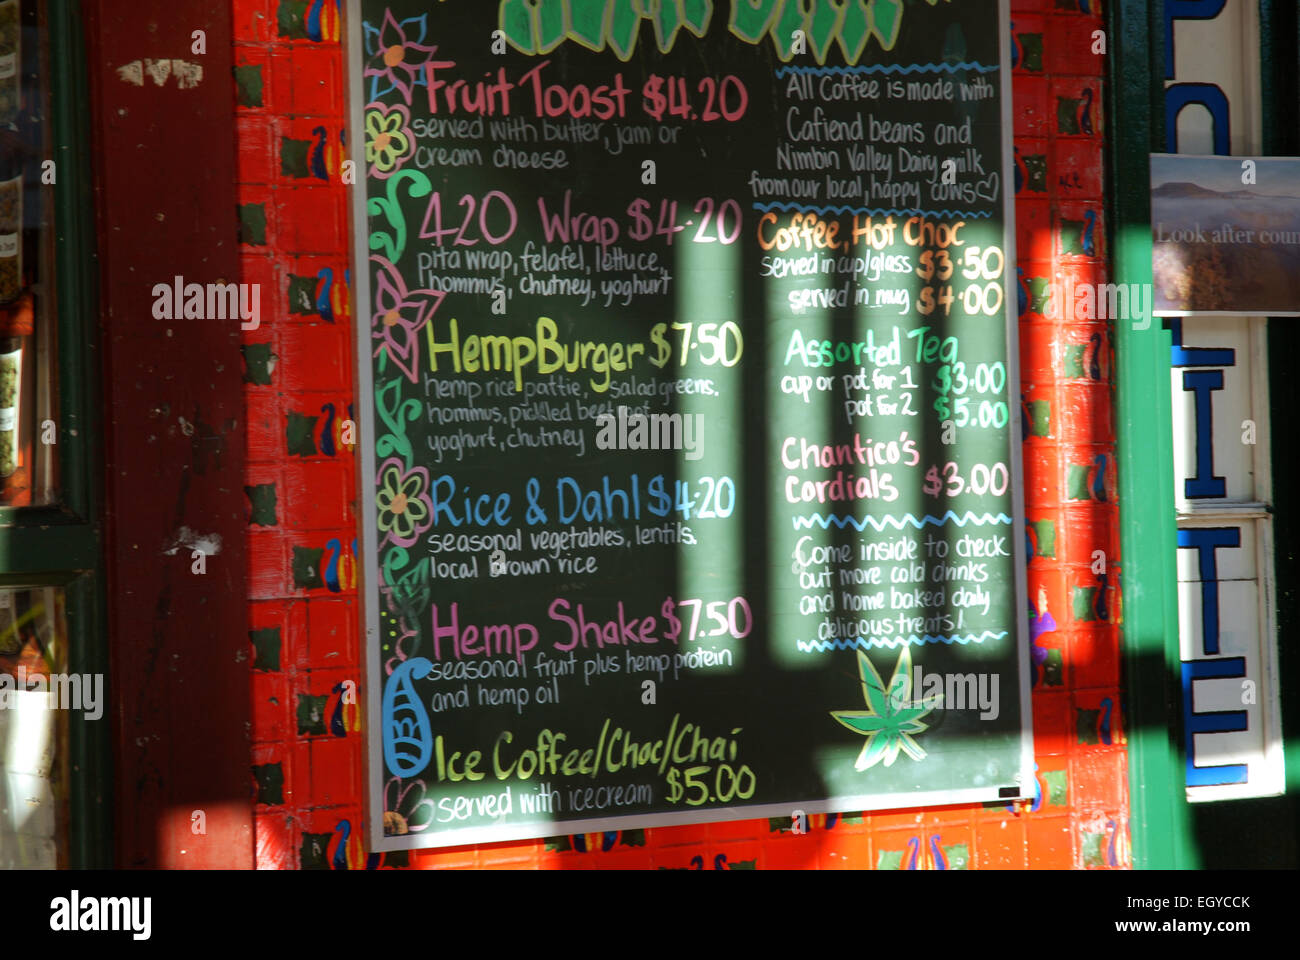 Fruit Toast $4.20
served with butter, jam or
cream cheese
420 Wrap $4.20
pita wrap, felafel, lettuce,
hommus, chutney, yoghurt
Hemp Burger $7.50
hemp rice pattie, salad greens.
hommus, pickled beetroot
yoghurt, chutney
Rice & Dahl $4.20
seasonal vegetables, lentils.
local Brown rice
Hemp Shake $7.50
seasonal fruit plus hemp protein
and hemp oil
Ice Coffee/Choc/Chai
served with icecream $5.00
All Coffee is made with
Cafiend beans and
Nimbin Valley Dairy milk
from our local, happy cows
Coffee, Hot Choc
served in cup/glass $3.50
served in mug $4.00
Assorted Tea
cup or pot for 1 $3.00
pot for 2 $5.00
Chantico's
Cordials $3.00
Come inside to check
out more cold drinks
and home baked daily
delicious treats!
Look after coun
P
O
L
I
T
E
alamy
Image ID: EGYCCK
www.alamy.com